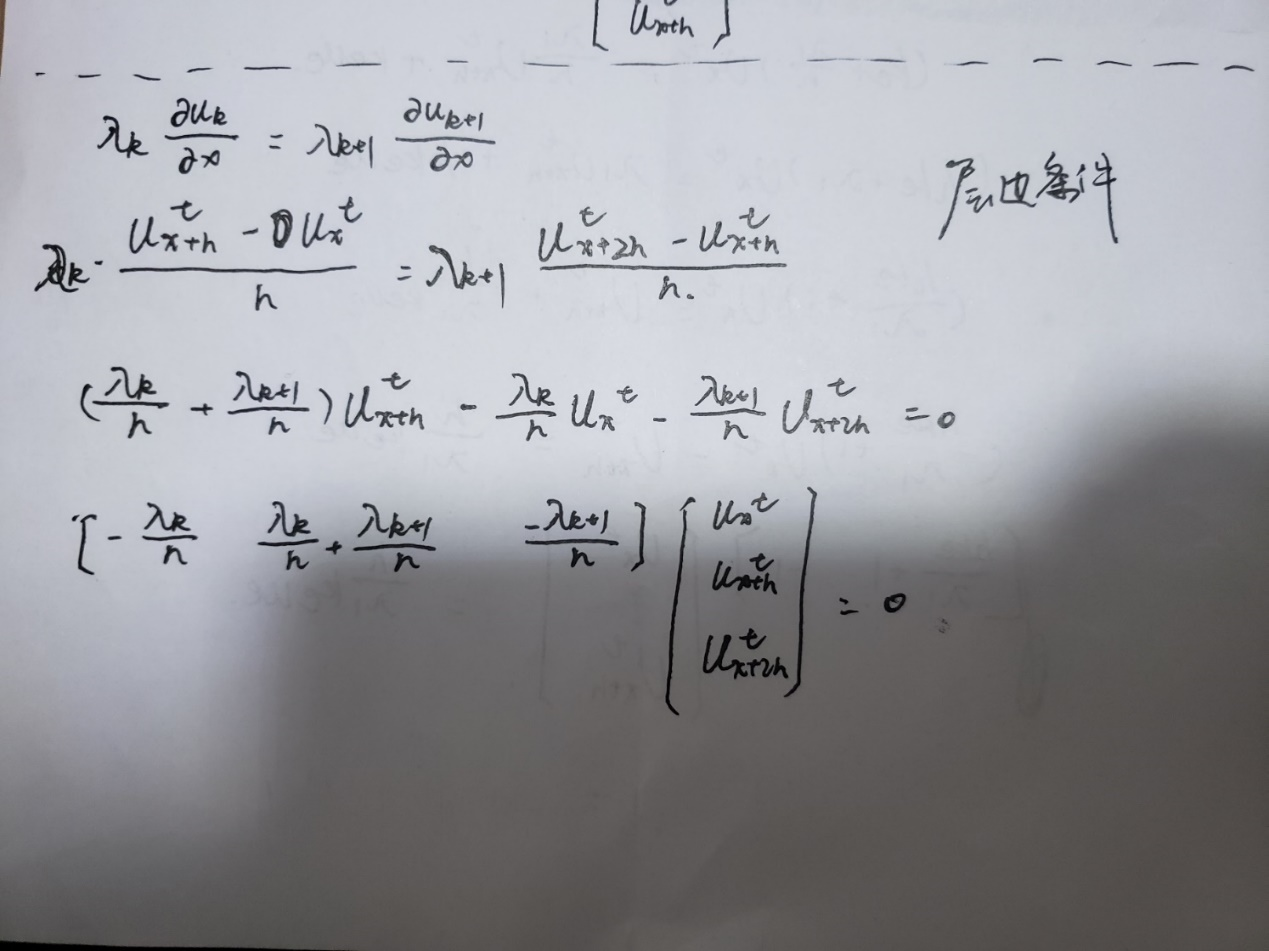 [ u_{x+h} ]
λ_k ∂u_k/∂x = λ_{k+1} ∂u_{k+1}/∂x
层边条件
λ_k · (u_{x+h}^t - u_x^t)/h = λ_{k+1} (u_{x+2h}^t - u_{x+h}^t)/h.
(λ_k/h + λ_{k+1}/h) u_{x+h}^t - λ_k/h u_x^t - λ_{k+1}/h u_{x+2h}^t = 0
[ -λ_k/h   λ_k/h + λ_{k+1}/h   -λ_{k+1}/h ] [ u_x^t ; u_{x+h}^t ; u_{x+2h}^t ] = 0